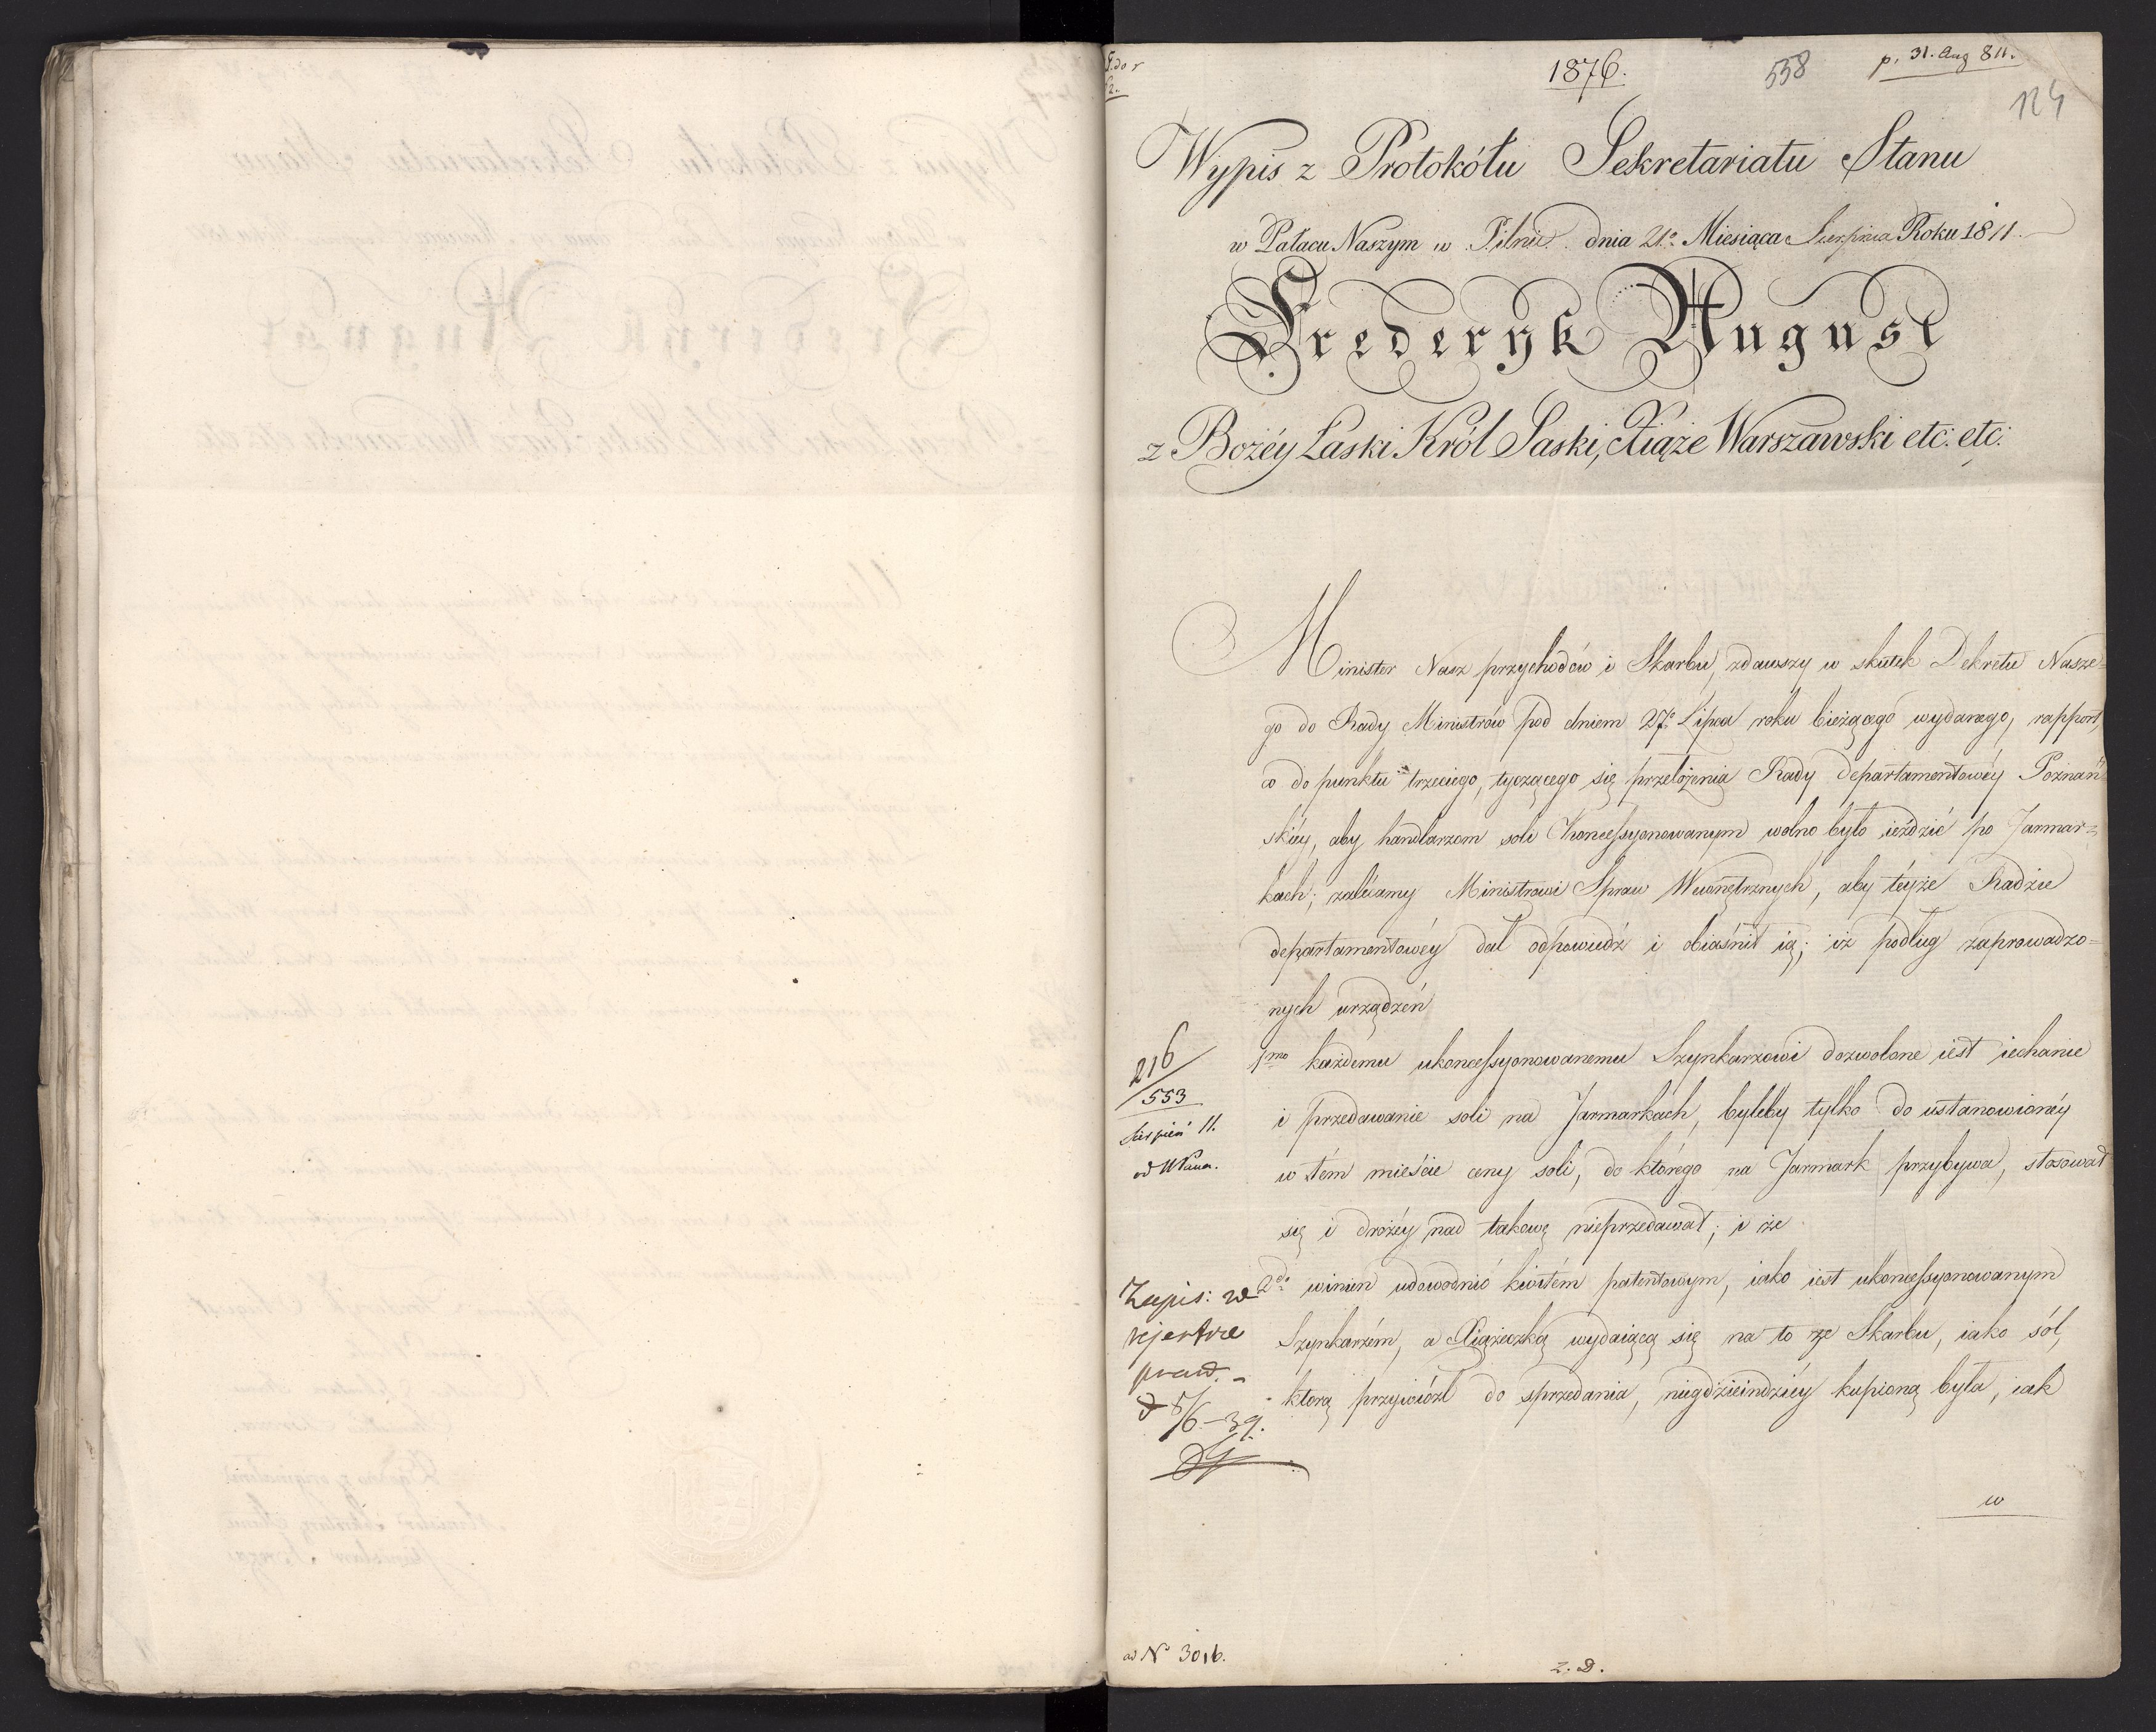 1876.
558
p. 31. Aug 811.
124
Wypis z Protokółu Sekretariatu Stanu
w Pałacu Naszym w Pilnic. dnia 21º Miesiąca Sierpnia Roku 1811.
Frederyk August
z Bożéy Łaski Król Saski, Xiąże Warszawski etc: etc:
Minister Nasz przychodów i Skarbu, zdawszy w skutek Dekretu Nasze=
go do Rady Ministrów pod dniem 27º Lipca roku bieżącego wydanego, rapport,
co do punktu trzeciego, tyczącego się przełożenia Rady departamentowéy Poznań=
skiéy, aby handlarzom soli Koncessyonowanym wolno było ieździć po Jarmar=
kach; zalécamy Ministrowi Spraw Wewnętrznych, aby téyże Radzie
departamentowéy dał odpowiedź i obiaśnił ią; iż podług zaprowadzo=
nych urządzeń
1mo każdemu ukoncessyonowanemu Szynkarzowi dozwolone iest iechanie
i przedawanie soli na Jarmarkach, byleby tylko do ustanowionéy
w tém mieście ceny soli, do którego na Jarmark przybywa, stosował
się i drożéy nad takową nieprzedawał; i że
2do winien udowodnić kwitem patentowym, iako iest ukoncessyonowanym
Szynkarzém, a Xiążeczką wydaiącą się na to ze Skarbu, iako sól,
którą przywiózł do sprzedania, niegdzieindziéy kupioną była, iak
w
216
553
Sierpień 11.
Zapis: w
rejestrze
prawd. -
d 5/6 - 39.
ad Nº 3016.
z. D.